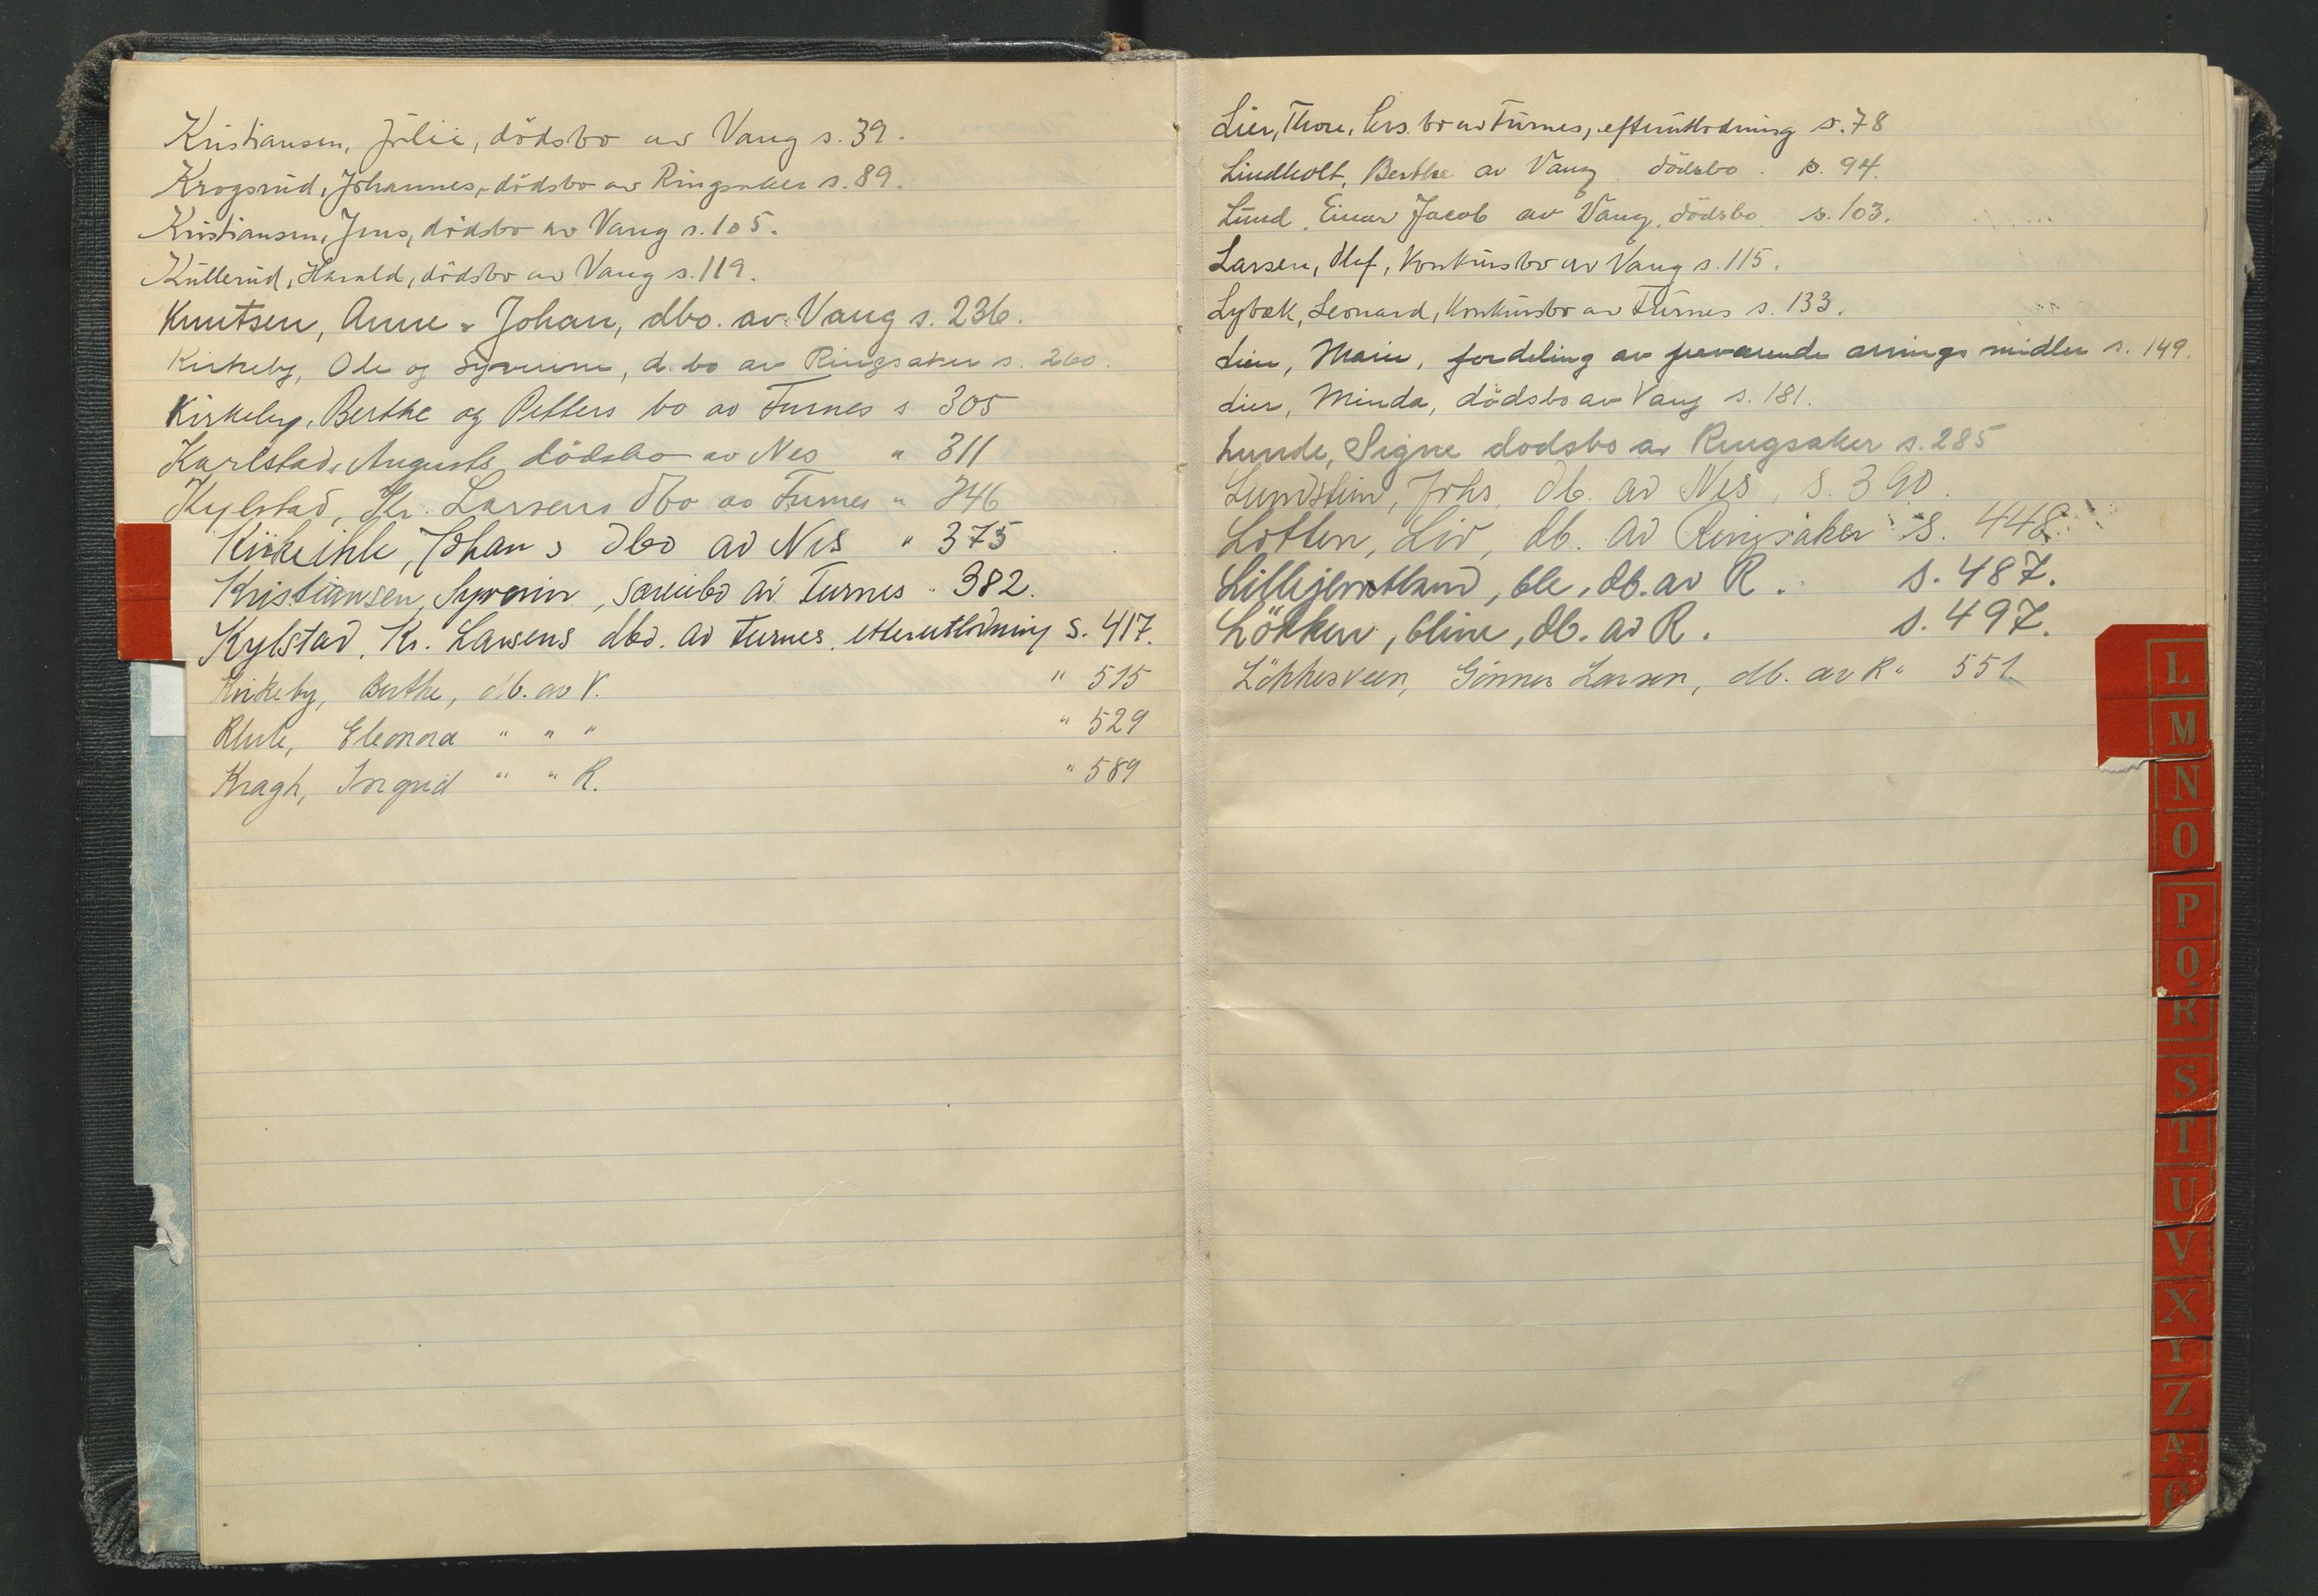 Kristiansen, Julie, dödsbo av Vang s. 39.
Krogsrud, Johannes, dödsbo av Ringsaker s. 89.
Kristiansen, Jens, dödsbo av Vang s. 105.
Kullerud, Harald, dödsbo av Vang s. 119.
Knutsen, Anne & Johan, dbo. av Vang s. 236.
Kirkeby, Ole og Syverine, d. bo av Ringsaker s. 260.
Kirkeby, Berthe og Petters bo av Furnes s 305
Karlstad, Augusts dödsbo av Nes " 311
Kylstad, Kr. Larsens dbo av Furnes " 346
Kirkeihle, Johans dbo av Nes " 375
Kristiansen, Syverin, særeibo av Furnes " 382.
Kylstad, Kr. Larsens dbo. av Furnes. etterutlodning s. 417.
Kirkeby, Berthe, db. av V. " 515
Klute, Eleonora " " " " 529
Kragh, Ingrid " " R. " 589
Lier, Thore, krs. bo av Furnes, efterutlodning s. 78
Lindholt, Berthe av Vang dödsbo. s. 94.
Lund, Einar Jacob av Vang, dödsbo s. 103.
Larsen, Olaf, Konkursbo av Vang s. 115.
Lybæk, Leonard, Konkursbo av Furnes s. 133.
Lien, Marie, fordeling av av arvings midler s. 149.
Lier, Minda, dödsbo av Vang s. 181.
Lunde, Signe dodsbo av Ringsaker s. 285
Lundstein, Johs, db. av Nes, s. 390.
Lotten, Liv, db. av Ringsaker s. 448.
Lillejemtland, Ole, db. av R. s. 487.
Lökken, Oline, db. av R. s. 497.
Gunnar Larsen, db. av R " 551
L
M
N
O
P
Q
R
S
T
U
V
X
Y
Z